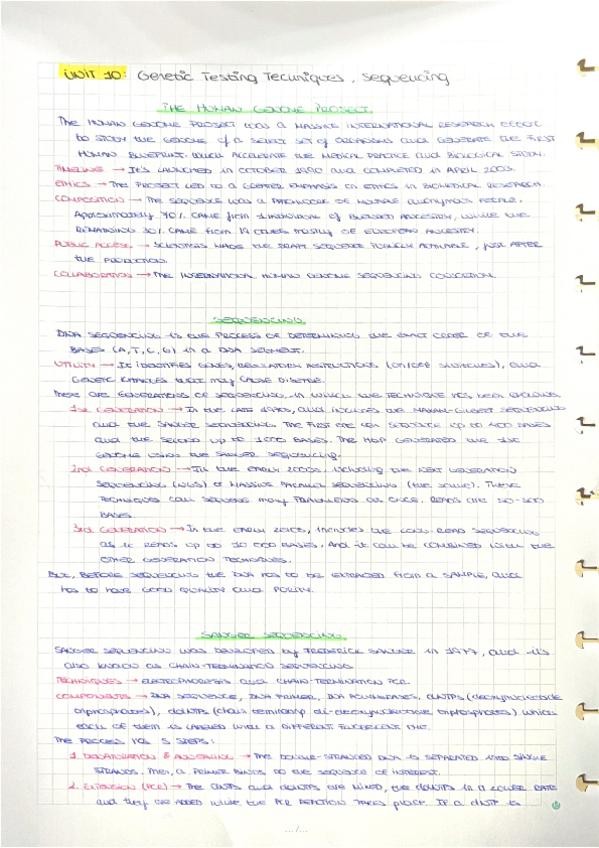 UNIT 10: Genetic Testing Tecniques, Sequencing
THE HUMAN GENOME PROJECT
THE HUMAN GENOME PROJECT WAS A MASSIVE INTERNATIONAL RESEARCH EFFORT
TO STUDY THE GENOME of A SELECT SET of ORGANISMS AND GENERATE THE FIRST
HUMAN BLUEPRINT WHICH ACCELERATE THE MEDICAL PRACTICE AND BIOLOGICAL STUDY.
TIMELINE → IT'S LAUNCHED IN OCTOBER 1990 AND COMPLETED IN APRIL 2003.
ETHICS → THE PROJECT LED TO A GREATER EMPHASIS ON ETHICS IN BIOMEDICAL RESEARCH.
COMPOSITION → THE SEQUENCE WAS A PATCHWORK OF MULTIPLE ANONYMOUS PEOPLE.
Approximately 70% CAME from 1 individual of BLENDED ANCESTRY, WHILE THE
REMAINING 30% CAME FROM 19 OTHERS MOSTLY OF EUROPEAN ANCESTRY.
PUBLIC ACCESS → SCIENTISTS MADE THE DRAFT SEQUENCE PUBLICLY AVAILABLE, JUST AFTER
THE PRODUCTION.
COLLABORATION → THE INTERNATIONAL HUMAN GENOME SEQUENCING CONSORTIUM.
SEQUENCING
DNA SEQUENCING IS THE PROCESS OF DETERMINING THE EXACT ORDER OF THE
BASES (A, T, C, G) IN A DNA SEGMENT.
UTILITY → IT IDENTIFIES GENES, REGULATORY INSTRUCTIONS (ON/OFF SWITCHES), AND
GENETIC CHANGES THAT MAY CAUSE DISEASE.
THERE ARE GENERATIONS OF SEQUENCING, IN WHICH THE TECHNIQUE HAS BEEN EVOLVING
1st GENERATION → IN THE LATE 1970s, AND INCLUDES THE MAXAM-GILBERT SEQUENCING
AND THE SANGER SEQUENCING. THE FIRST ONE CAN SEQUENCE UP TO 400 BASES
AND THE SECOND UP TO 1000 BASES. THE HGP GENERATED THE 1st
GENOME USING THE SANGER SEQUENCING.
2nd GENERATION → IN THE EARLY 2000s, INCLUDING THE NEXT GENERATION
SEQUENCING (NGS) OR MASSIVE PARALLEL SEQUENCING (the same). THESE
TECHNIQUES CAN SEQUENCE many FRAGMENTS AT ONCE. READS ARE 50-500
BASES.
3rd GENERATION → IN THE EARLY 2010s, INCLUDES THE LONG-READ SEQUENCING
AS IT READS UP TO 10 000 BASES. AND IT CAN BE COMBINED WITH THE
OTHER GENERATION TECNIQUES.
BUT, BEFORE SEQUENCING THE DNA HAS TO BE EXTRACTED FROM A SAMPLE, AND
HAS TO HAVE GOOD QUALITY AND PURITY.
SANGER SEQUENCING
SANGER SEQUENCING WAS DEVELOPED by FREDERICK SANGER IN 1977, AND IT'S
ALSO KNOWN AS CHAIN-TERMINATION SEQUENCING
TECHNIQUES → ELECTROPHORESIS AND CHAIN-TERMINATION PCR.
COMPONENTS → DNA SEQUENCE, DNA PRIMER, DNA POLYMERASES, dNTPs (deoxynucleotide
triphosphates), ddNTPs (chain terminating di-deoxynucleotide triphosphates) which
EACH OF THEM IS LABELED WITH A DIFFERENT FLUORESCENT
THE PROCESS HAS 5 STEPS:
1. DENATURATION & ANNEALING → THE DOUBLE-STRANDED DNA IS SEPARATED INTO SINGLE
STRANDS. THEN, A PRIMER BINDS TO THE SEQUENCE OF INTEREST.
2. EXTENSION (PCR) → THE dNTPs AND ddNTPs ARE MIXED, THE ddNTPs IN A LOWER RATE
AND they ARE ADDED WHILE THE PCR REACTION TAKES PLACE. IF A dNTP IS
.../...